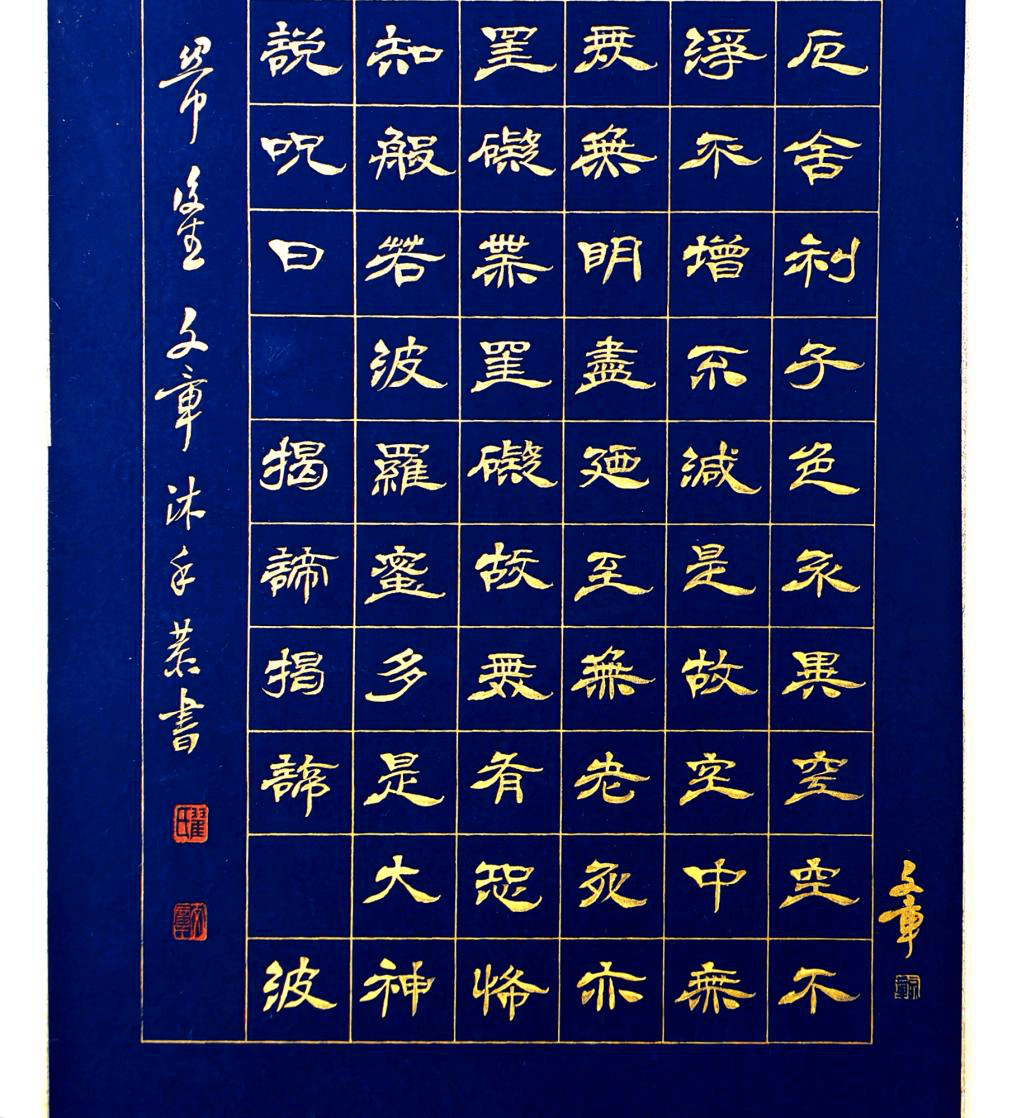 文章
厄舍利子色不異空空不
淨不增不減是故空中無
無無明盡廼至無老死亦
罣礙無罣礙故無有恐怖
知般若波羅蜜多是大神
說呪曰 揭諦揭諦 波
文章沐手恭書
翟氏
文章